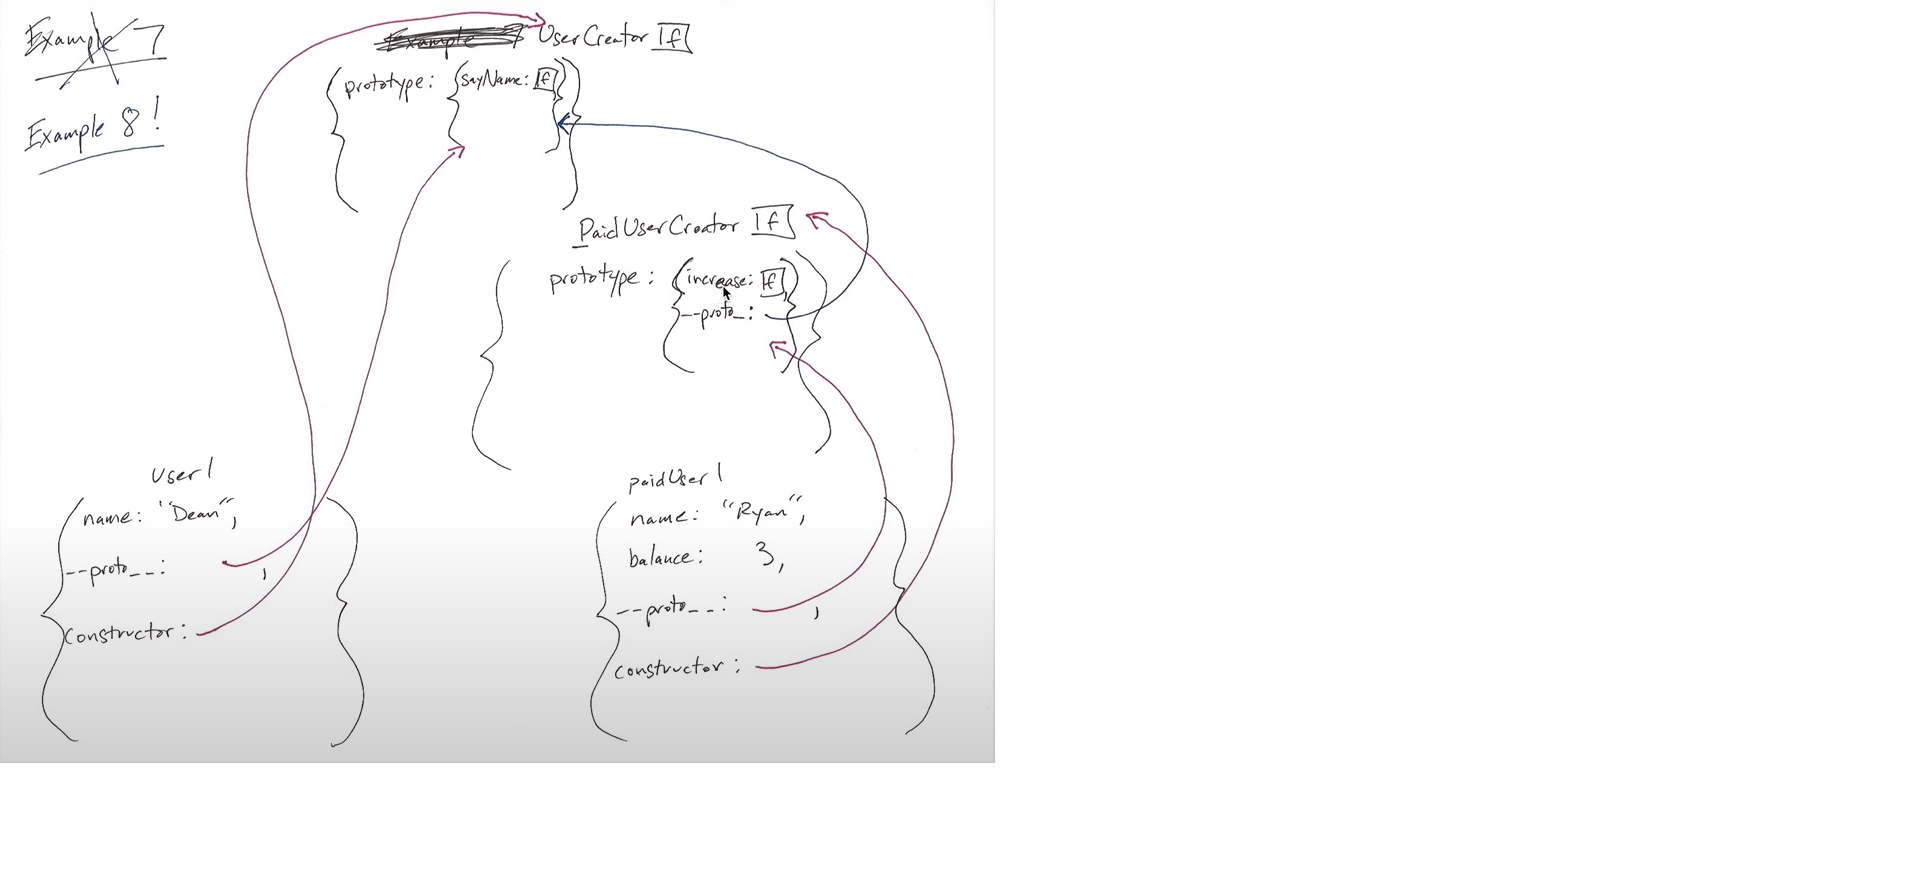 Example 7
Example 8!
Example 7 UserCreator f
prototype: { sayName: f }
PaidUserCreator f
prototype: { increase: f,
--proto_:
User1
name: "Dean",
--proto--: ,
constructor:
paidUser1
name: "Ryan",
balance: 3,
--proto--: ,
constructor: